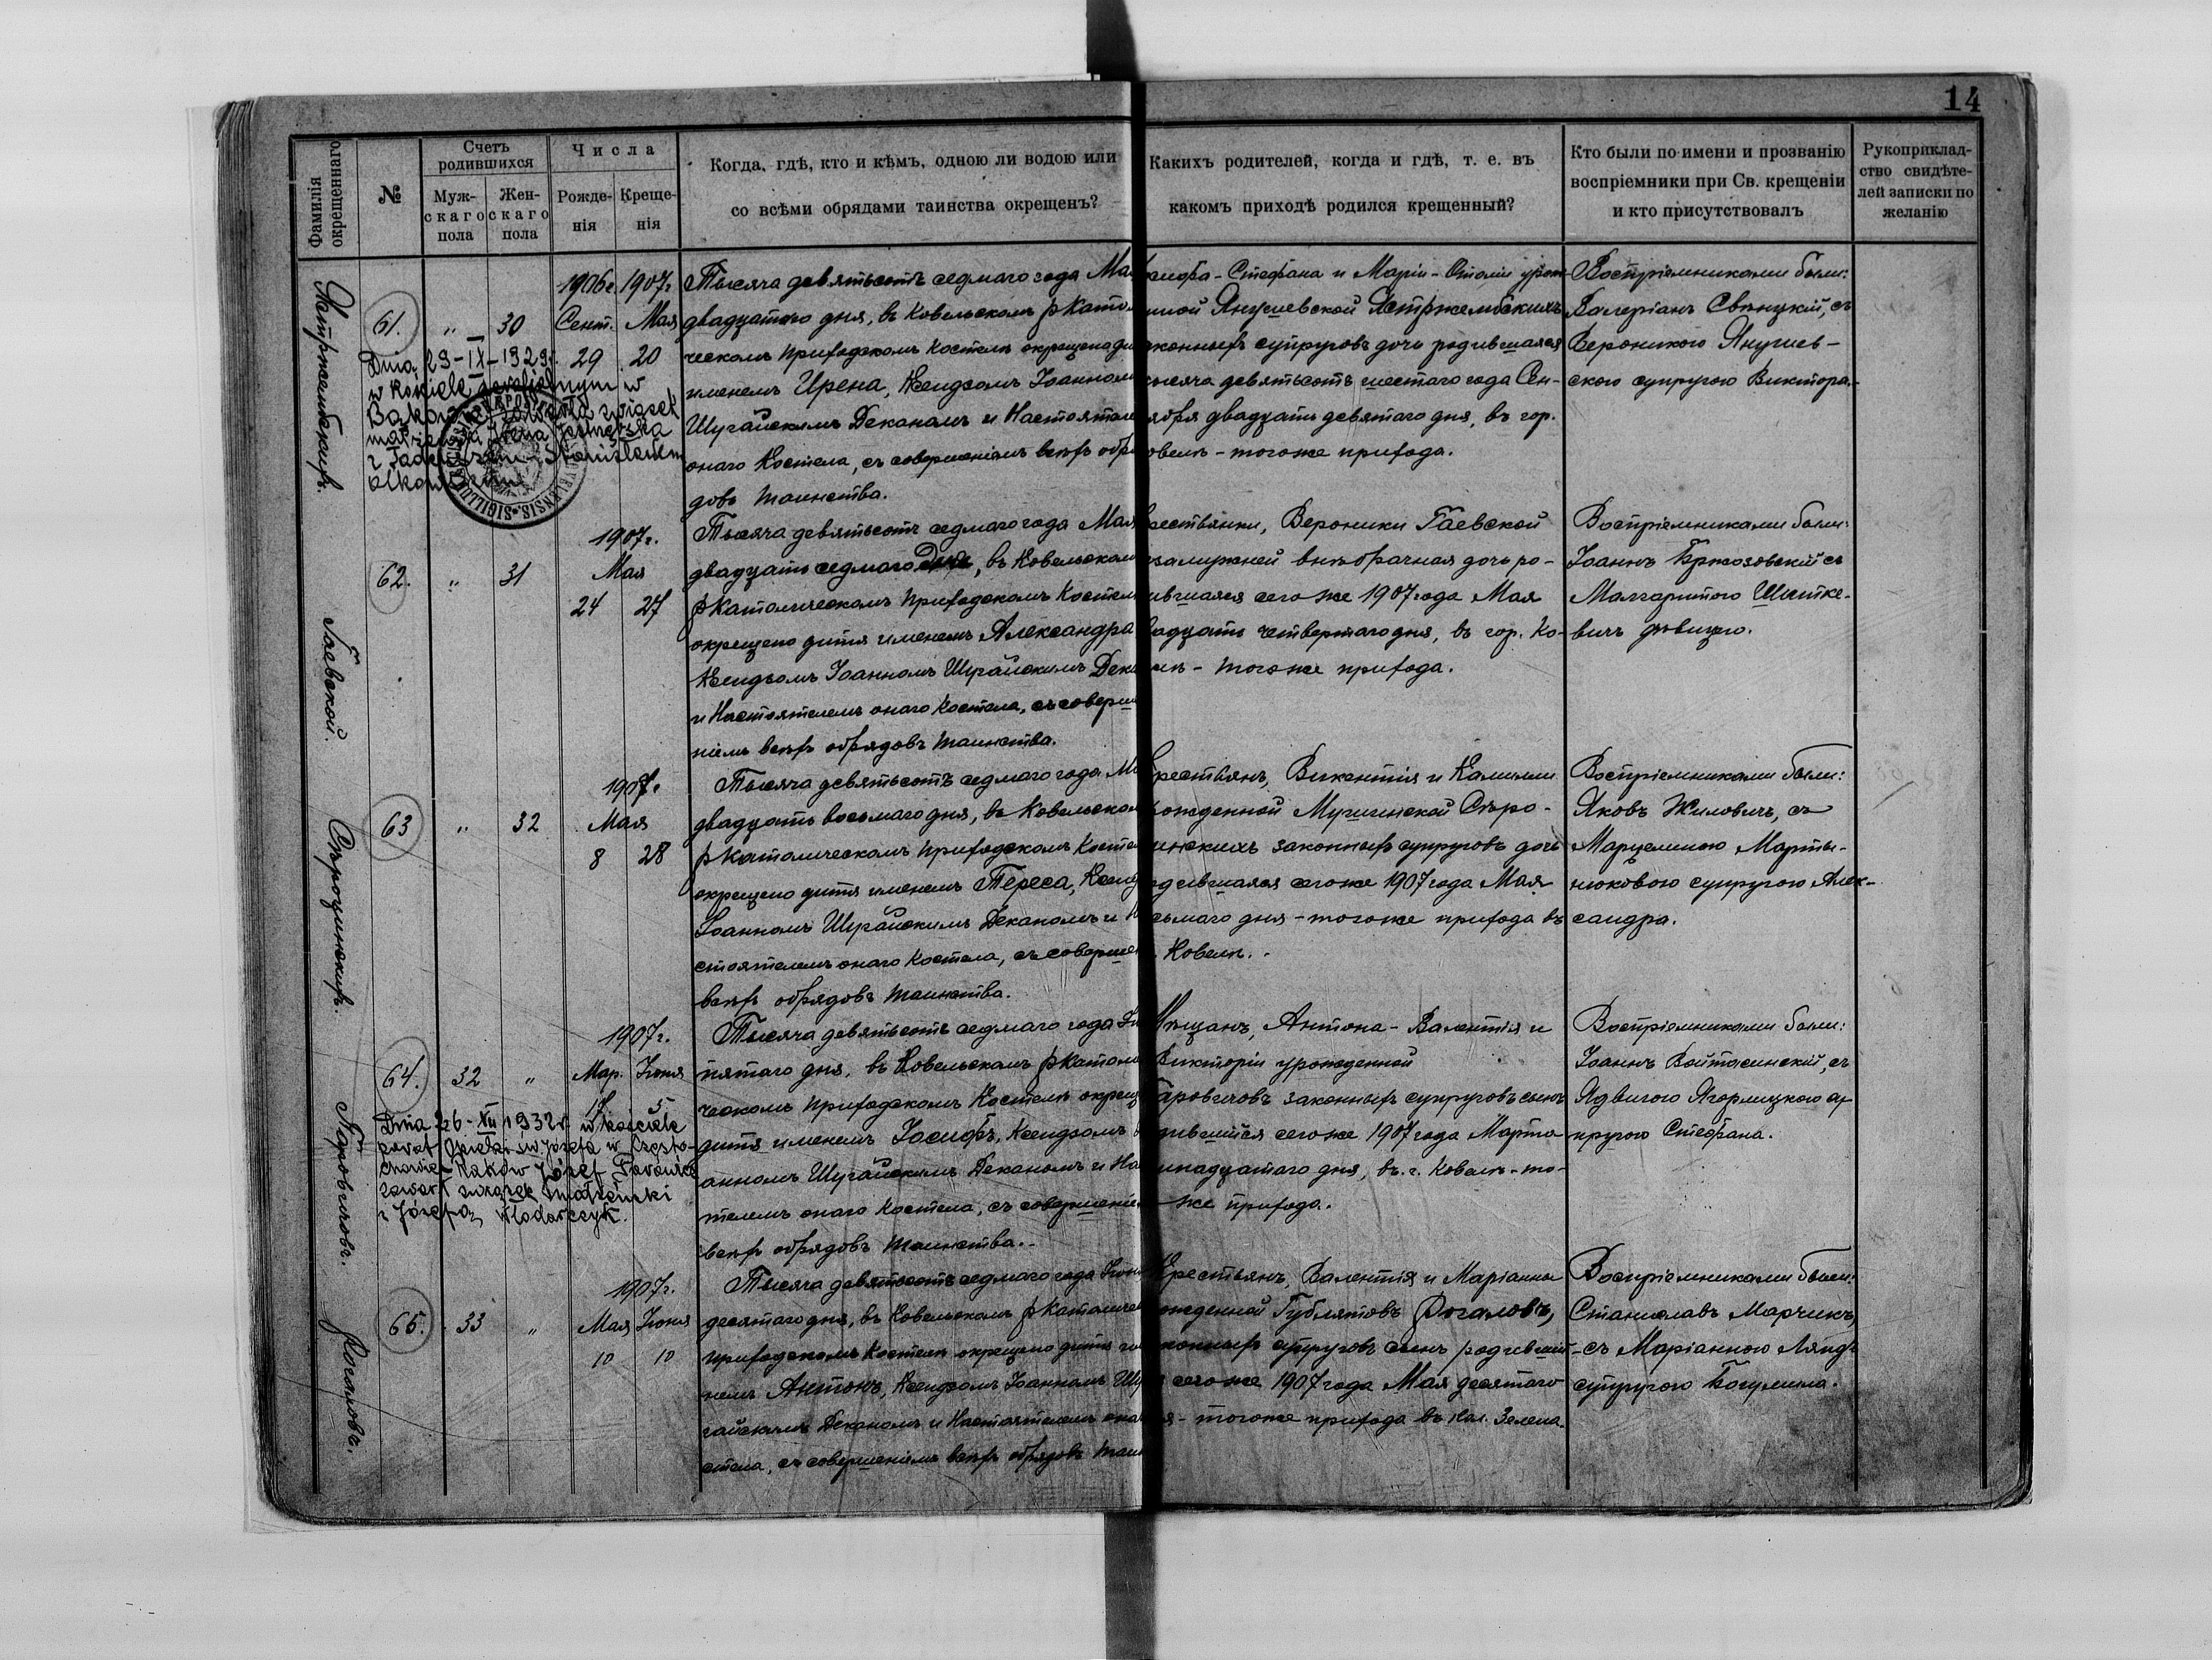 14
Фамилія окрещеннаго
№
Счетъ родившихся
Муж-
скаго
пола
Жен-
скаго
пола
Числа
Рожде-
нія
Креще-
нія
Когда, гдѣ, кто и кѣмъ, одною ли водою или
со всѣми обрядами таинства окрещенъ?
Какихъ родителей, когда и гдѣ, т. е. въ
какомъ приходѣ родился крещенный?
Кто были по имени и прозванію
воспріемники при Св. крещеніи
и кто присутствовалъ
Рукоприклад-
ство свидѣте-
лей записки по
желанію
Ястржембскихъ.
61.
"
30
1906г. 1907г.
Сент. Мая
29 20
Dnia 29-IX-1929r.
w kościele parafialnym w
związek
Irena
z Tadeuszem Stanisławem
Тысяча девятьсотъ седмаго года Мая
двадцатаго дня, въ Ковельскомъ рКатоли
ческомъ приходскомъ Костелѣ окрещена ди
именемъ Ирена, Ксендзомъ Іоанном
Шугайскимъ Деканомъ и Настоятеле
онаго Костела, съ совершеніемъ всѣхъ обря
довъ таинства.
Стефана и Маріи - урож
нной Янушевской Ястржембскихъ
конныхъ супруговъ дочь родившаяся
тысяча девятьсотъ шестаго года Сен-
ября двадцать девятаго дня, въ гор.
овелѣ - тогоже прихода.
Воспріемниками были:
Валеріанъ Свѣнцкій, съ
Вероникою Янушев-
скою супругою Виктора.
Гаевской.
62.
"
31
1907г.
Мая
24 27
Тысяча девятьсотъ седмаго года Мая
двадцать седмаго дня, въ Ковельском
рКатолическомъ приходскомъ Костел
окрещено дитя именемъ Александра
Ксендзомъ Іоанномъ Шугайскимъ Дека
и Настоятелемъ онаго Костела, съ соверше
ніемъ всѣхъ обрядовъ таинства.
рестьянки, Вероники Гаевской
езамужней внѣбрачная дочь ро-
ившаяся сегоже 1907 года Мая
вадцать четвертаго дня, въ гор. Ко-
елѣ - тогоже прихода.
Воспріемниками были:
Іоаннъ Бржозовскій съ
Малгаритою Шитке-
вичъ дѣвицею.
Сѣроцинскихъ.
63
"
32
1907г.
Мая
8 28
Тысяча девятьсотъ седмаго года Ма
двадцать восьмаго дня, въ Ковельском
рКатолическомъ приходскомъ Косте
окрещено дитя именемъ Тереса, Ксенд
Іоанномъ Шугайскимъ Деканомъ и На
стоятелемъ онаго Костела, съ соверше
всѣхъ обрядовъ таинства.
Крестьянъ, Викентія и Камиліи
рожденной Мушинской Сѣро-
инскихъ законныхъ супруговъ дочь
одившаяся сегоже 1907 года Мая
сьмаго дня - тогоже прихода въ
Ковелѣ.
Воспріемниками были:
Яковъ Жиловичъ, съ
Марцелиною Марты-
нюковою супругою Алек-
сандра.
Таровичовъ.
64.
32
"
1907г.
Мар. Іюня
5
Dnia 26-XII 1932r. w kościele
paraf. Opieki św. Józefa w Często-
chowie - Raków Józef
zawarł związek małżeński
z Józefą Włodarczyk.
Тысяча девятьсотъ седмаго года Ію
пятаго дня, въ Ковельскомъ рКатоли
ческомъ приходскомъ Костелѣ окрещ
дитя именемъ Іосифъ, Ксендзомъ
анномъ Шугайскимъ Деканомъ и На
телемъ онаго Костела, съ совершеніе
всѣхъ обрядовъ таинства.
Мѣщанъ, Антона - Валентія и
Викторіи урожденной
Таровичовъ законныхъ супруговъ сынъ
дившійся сегоже 1907 года Марта
надцатаго дня, въ г. Ковелѣ - то-
же прихода.
Воспріемниками были:
Іоаннъ Войтасинскій, съ
Ядвигою Ягорлицкою су
пругою Стефана.
Рогаловъ.
65.
33
"
1907г.
Мая Іюня
10 10
Тысяча девятьсотъ седмаго года Іюня
десятаго дня, въ Ковельскомъ рКатоличе
приходскомъ Костелѣ окрещено дитя име
немъ Антонъ, Ксендзомъ Іоанномъ Шу
гайскимъ Деканомъ и Настоятелемъ она
стела, съ совершеніемъ всѣхъ обрядовъ таин
Крестьянъ, Валентія и Маріанны
ожденной Гублятовъ Рогаловъ,
конныхъ супруговъ сынъ родившій-
сегоже 1907 года Мая десятаго
я - тогоже прихода въ кол. Зелена.
Воспріемниками были:
Станиславъ Марчикъ,
съ Маріанною Ляндъ
супругою Богумила.